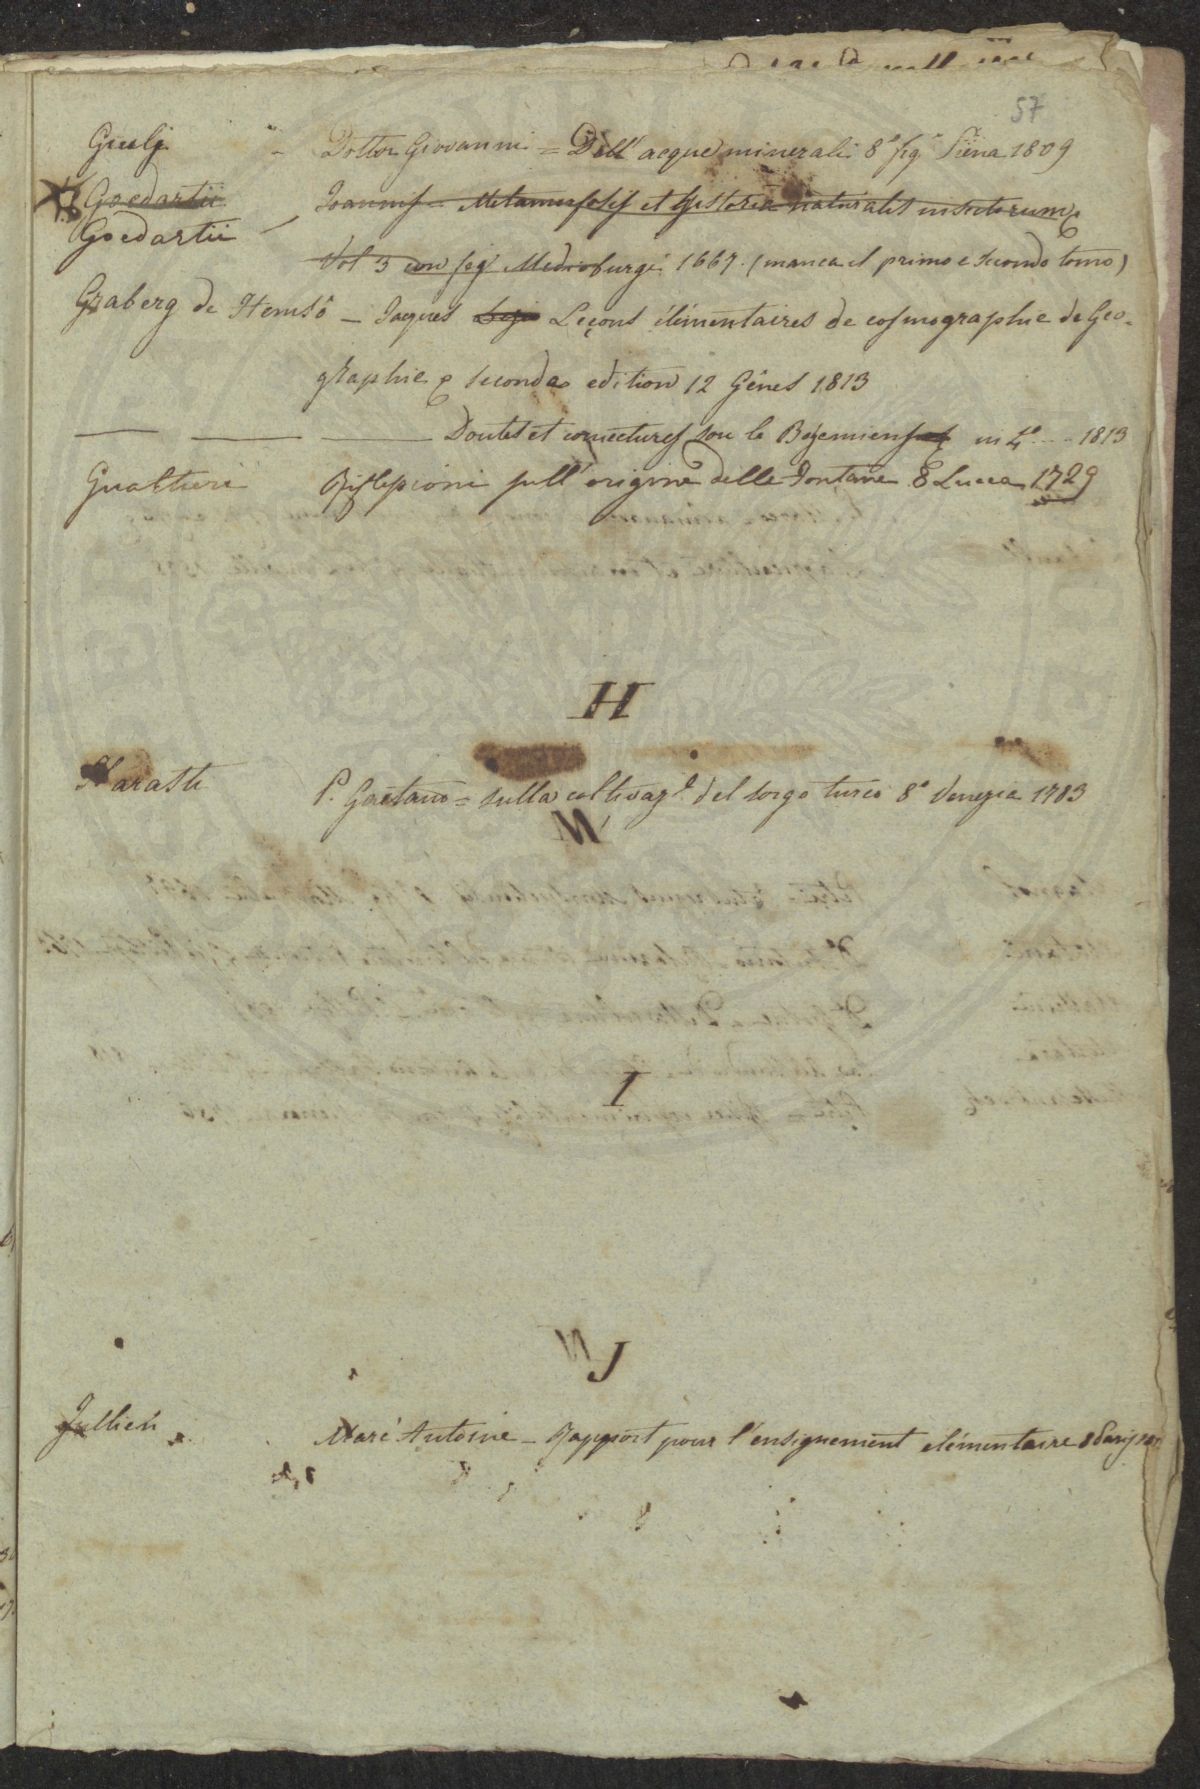 57
Giulj - Dottor Giovanni = Dell' acque minerali 8° fig° Siena 1809
Goedartii Joannis = Metamorfosis et Historia naturalis insectorum
Goedartii
Vol 3 con fig Medioburgi 1667. (manca il primo e secondo tomo)
Graberg de Hemsô - Jaques Leçons élimentaires de cosmographie de Geo-
graphie & seconda edition 12 Génes 1813
Doutes et conjectures sou le in 4° .... 1813
Gualtieri Riflessioni sull' origine delle Fontane 8 Lucca 1729
H
Harasti P. Gaetano = sulla coltivaz.e del sorgo turco 8° Venezia 1783
I
J
Jullien Marc Antoine - Rapport pour l'enseignement elémentaire 8 Parij